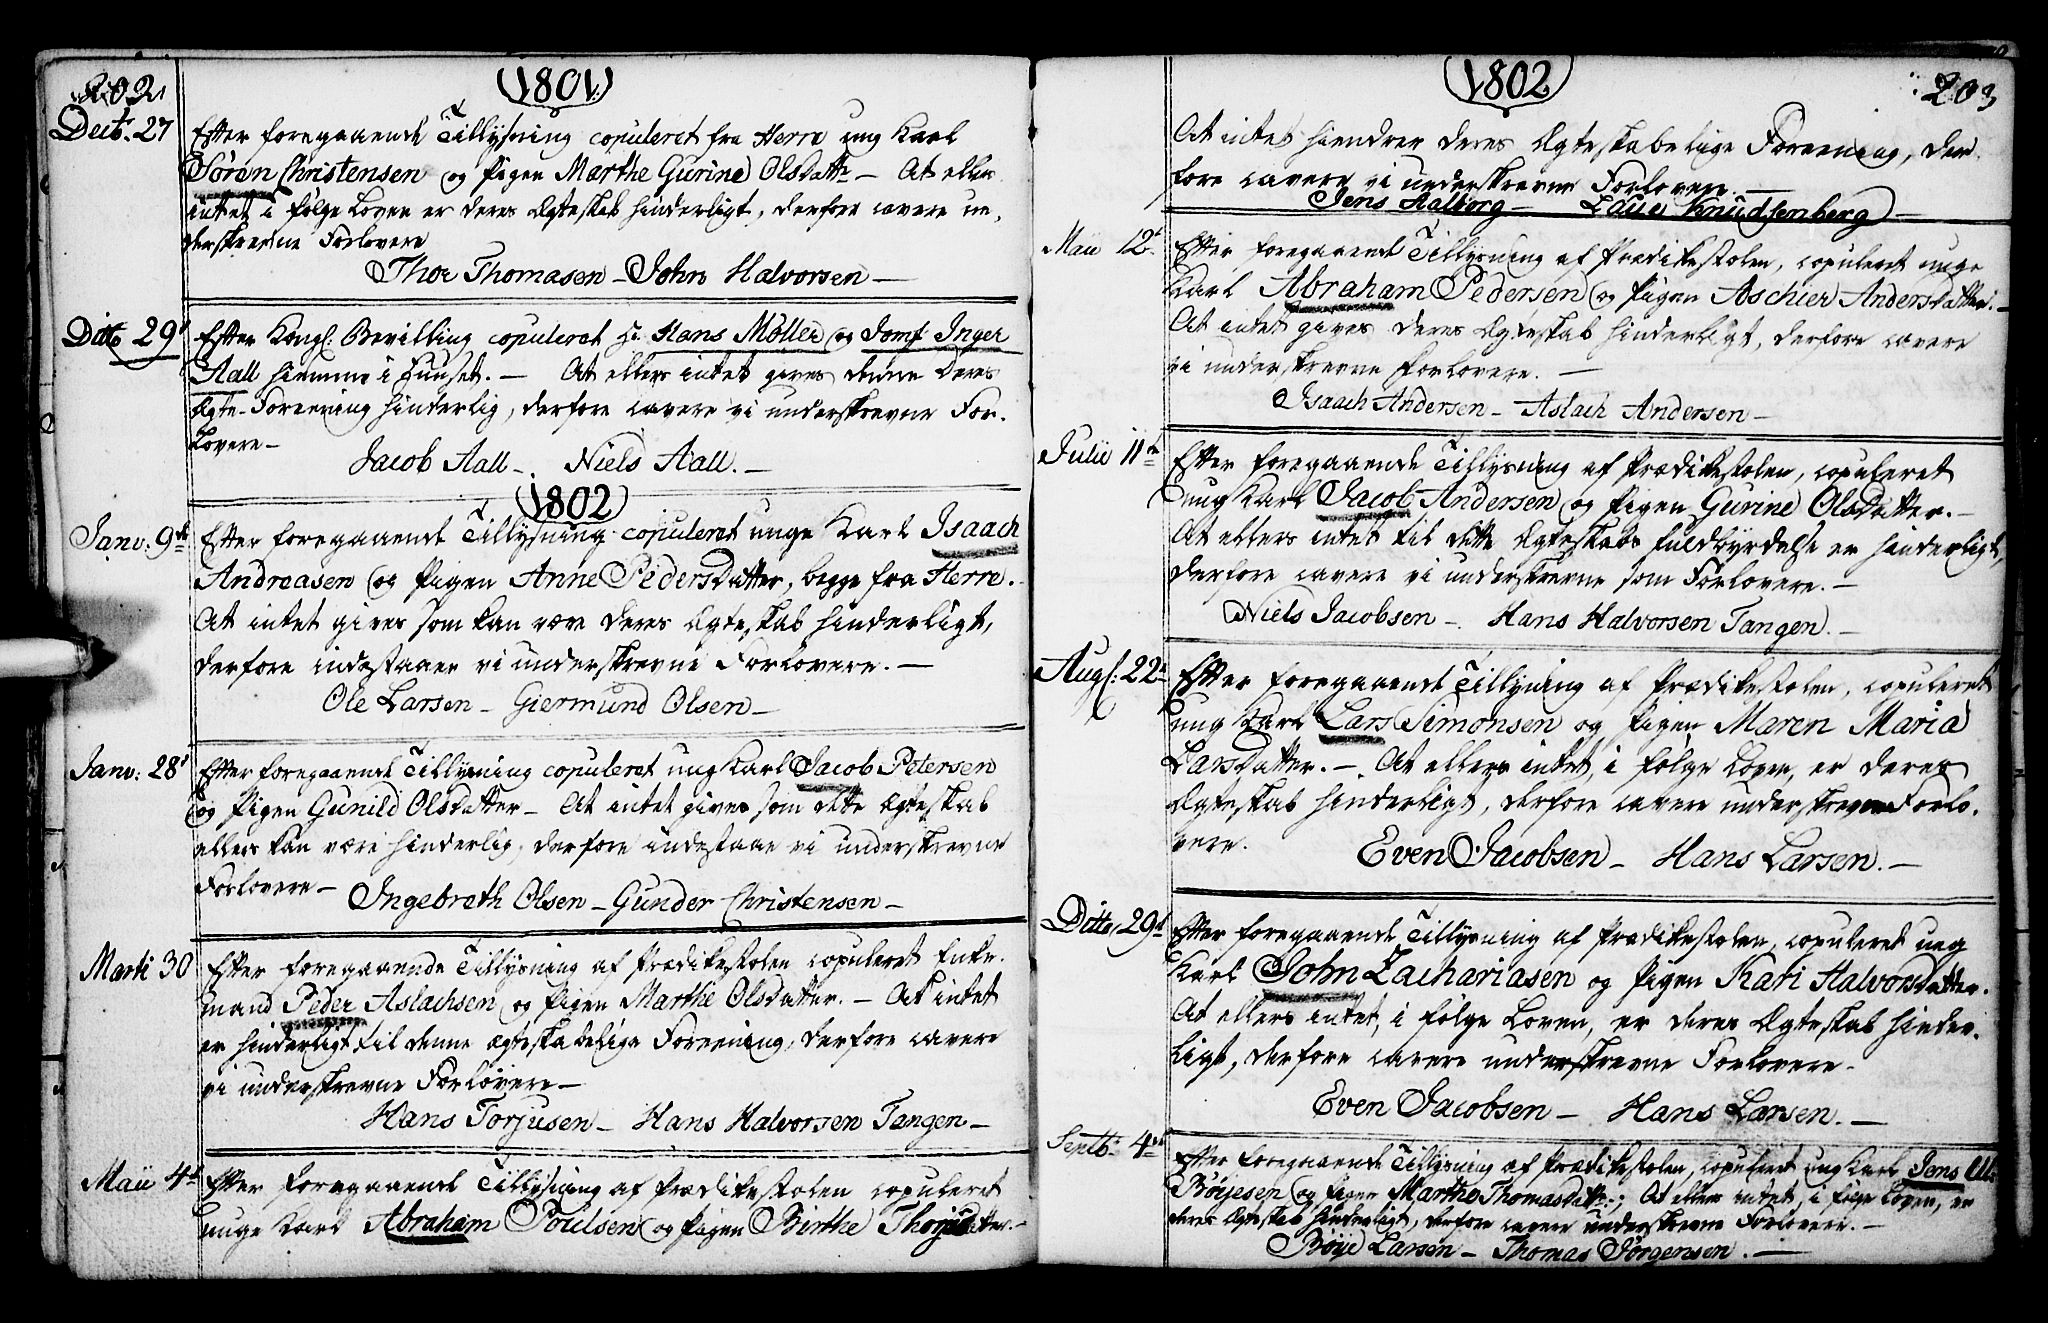 202
(1801)
Decbr. 27
Efter foregaaende Tillysning copuleret fra Herre ung Karl
Søren Christensen og Pigen Marthe Gurine Olsdattr – At ellers
intet i følge Loven er deres Ægteskab hinderligt, derfore cavere un-
derskrevne Forlovere
Thor Thomasen – John Halvorsen –
Ditto 29d
Efter Kongl: Bevilling copuleret Hr. Hans Møller og Jomf Inger
Aall hiemme i Huuset. – At ellers intet gives denne deres
Ægte-Foreening hinderlig, derfore cavere vi underskrevne For-
lovere –
Jacob Aall –. Niels Aall. –
(1802)
Janv: 9de
Efter foregaaende Tillysning copuleret unge Karl Isaach
Andreasen og Pigen Anne Pedersdatter, begge fra Herre. –
At intet gives som kan være deres Ægteskab hinderligt,
derfore indestaaer vi underskrevne Forlovere. –
Ole Larsen – Giermund Olsen –
Janv: 28d
Efter foregaaende Tillysning copuleret ung Karl Jacob Petersen
og Pigen Gunild Olsdatter – At intet gives som dette Ægteskab
ellers kan være hinderlig, derfore indestaae vi underskrevne
Forlovere –
Ingebreth Olsen – Gunder Christensen –
Marti 30
Efter foregaaende Tillysning af Prædikestolen copuleret Enke-
mand Peder Aslachsen og Pigen Marthe Olsdatter. – At intet
er hinderligt til denne ægteskabelige Foreening, derfore cavere
vi underskrevne Forlovere –
Hans Torjusen – Hans Halvorsen Tangen –
Maii 4d
Efter foregaaende Tillysning af Prædikestolen copuleret
unge Karl Abraham Poulsen og Pigen Birthe Thorjusdatter. –
(1802)
203
At intet hindrer deres Ægteskabelige Foreening, der-
fore cavere vi underskrevne Forlovere. –
Jens Aalborg – Laue Knudsenberg –
Maii 12t
Efter foregaaende Tillysning af Prædikestolen, copuleret unge
Karl Abraham Pedersen og Pigen Aschier Andersdatter. –
At intet gives deres Ægteskab hinderligt, derfore cavere
vi underskrevne Forlovere. –
Isaach Andersen – Aslach Andersen –
Julii 11te
Efter foregaaende Tillysning af Prædikestolen, copuleret
ung Karl Jacob Andersen og Pigen Gurine Olsdatter. –
At ellers intet til dette Ægteskabs fuldbyrdelse er hinderligt,
derfore cavere vi underskrevne som Forlovere. –
Niels Jacobsen –. Hans Halvorsen Tangen. –
Augs: 22d
Efter foregaaende Tillysning af Prædikestolen, copuleret
ung Karl Lars Simonsen og Pigen Maren Maria
Larsdatter. – At ellers intet, i følge Loven, er deres
Ægteskab hinderligt, derfore cavere underskrevne Forlo-
vere.
Even Jacobsen – Hans Larsen. –
Ditto 29d
Efter foregaaende Tillysning af Prædikestolen, copuleret ung
Karl John Zachariasen og Pigen Kari Halvorsdatter.
At ellers intet, i følge Loven, er deres Ægteskab hinder-
ligt, derfore cavere underskrevne Forlovere –
Even Jacobsen – Hans Larsen. –
Septbr. 4de
Efter foregaaende Tillysning af Prædikestolen, copuleret ung Karl Jens
Børjesen og Pigen Marthe Thomasdattr.; At ellers intet, i følge Loven, er
deres Ægteskab hinderligt, derfore cavere underskrevne Forlovere. –
Børje Larsen – Thomas Jørgensen. –